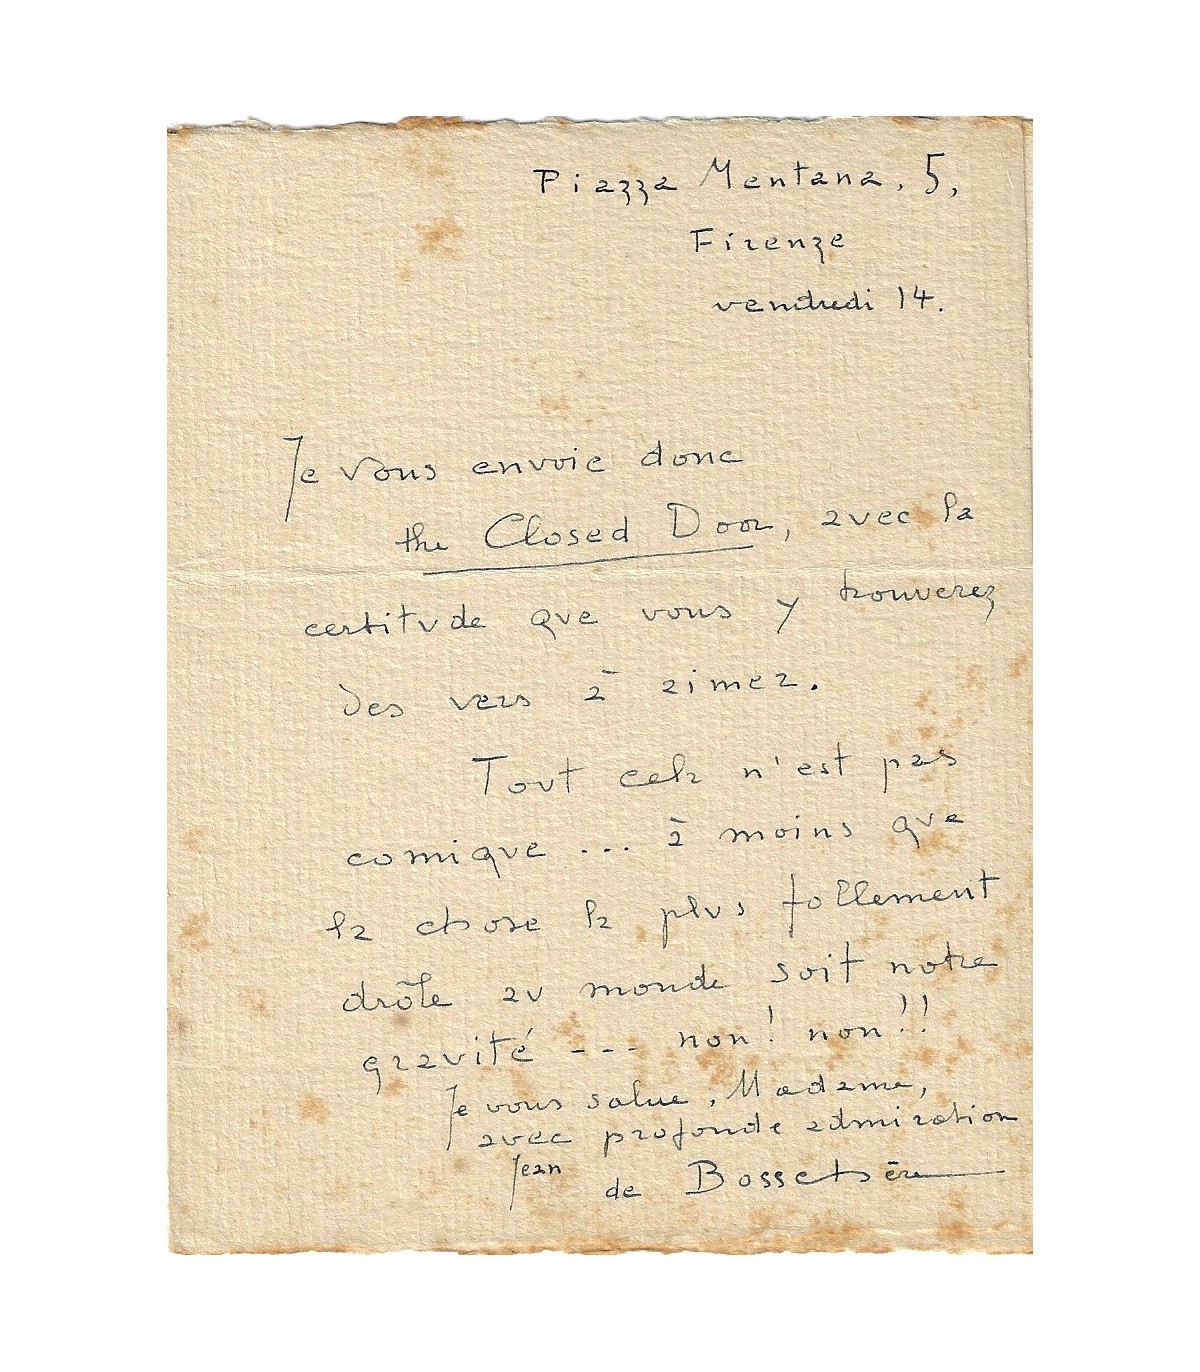 Piazza Mentana, 5,
Firenze
vendredi 14.
Je vous envoie donc
the Closed Door, avec la
certitude que vous y trouverez
des vers à aimer.
Tout cela n'est pas
comique ... à moins que
la chose la plus follement
drôle au monde soit notre
gravité --- non! non!!
Je vous salue, Madame,
avec profonde admiration
Jean
de Bosschère